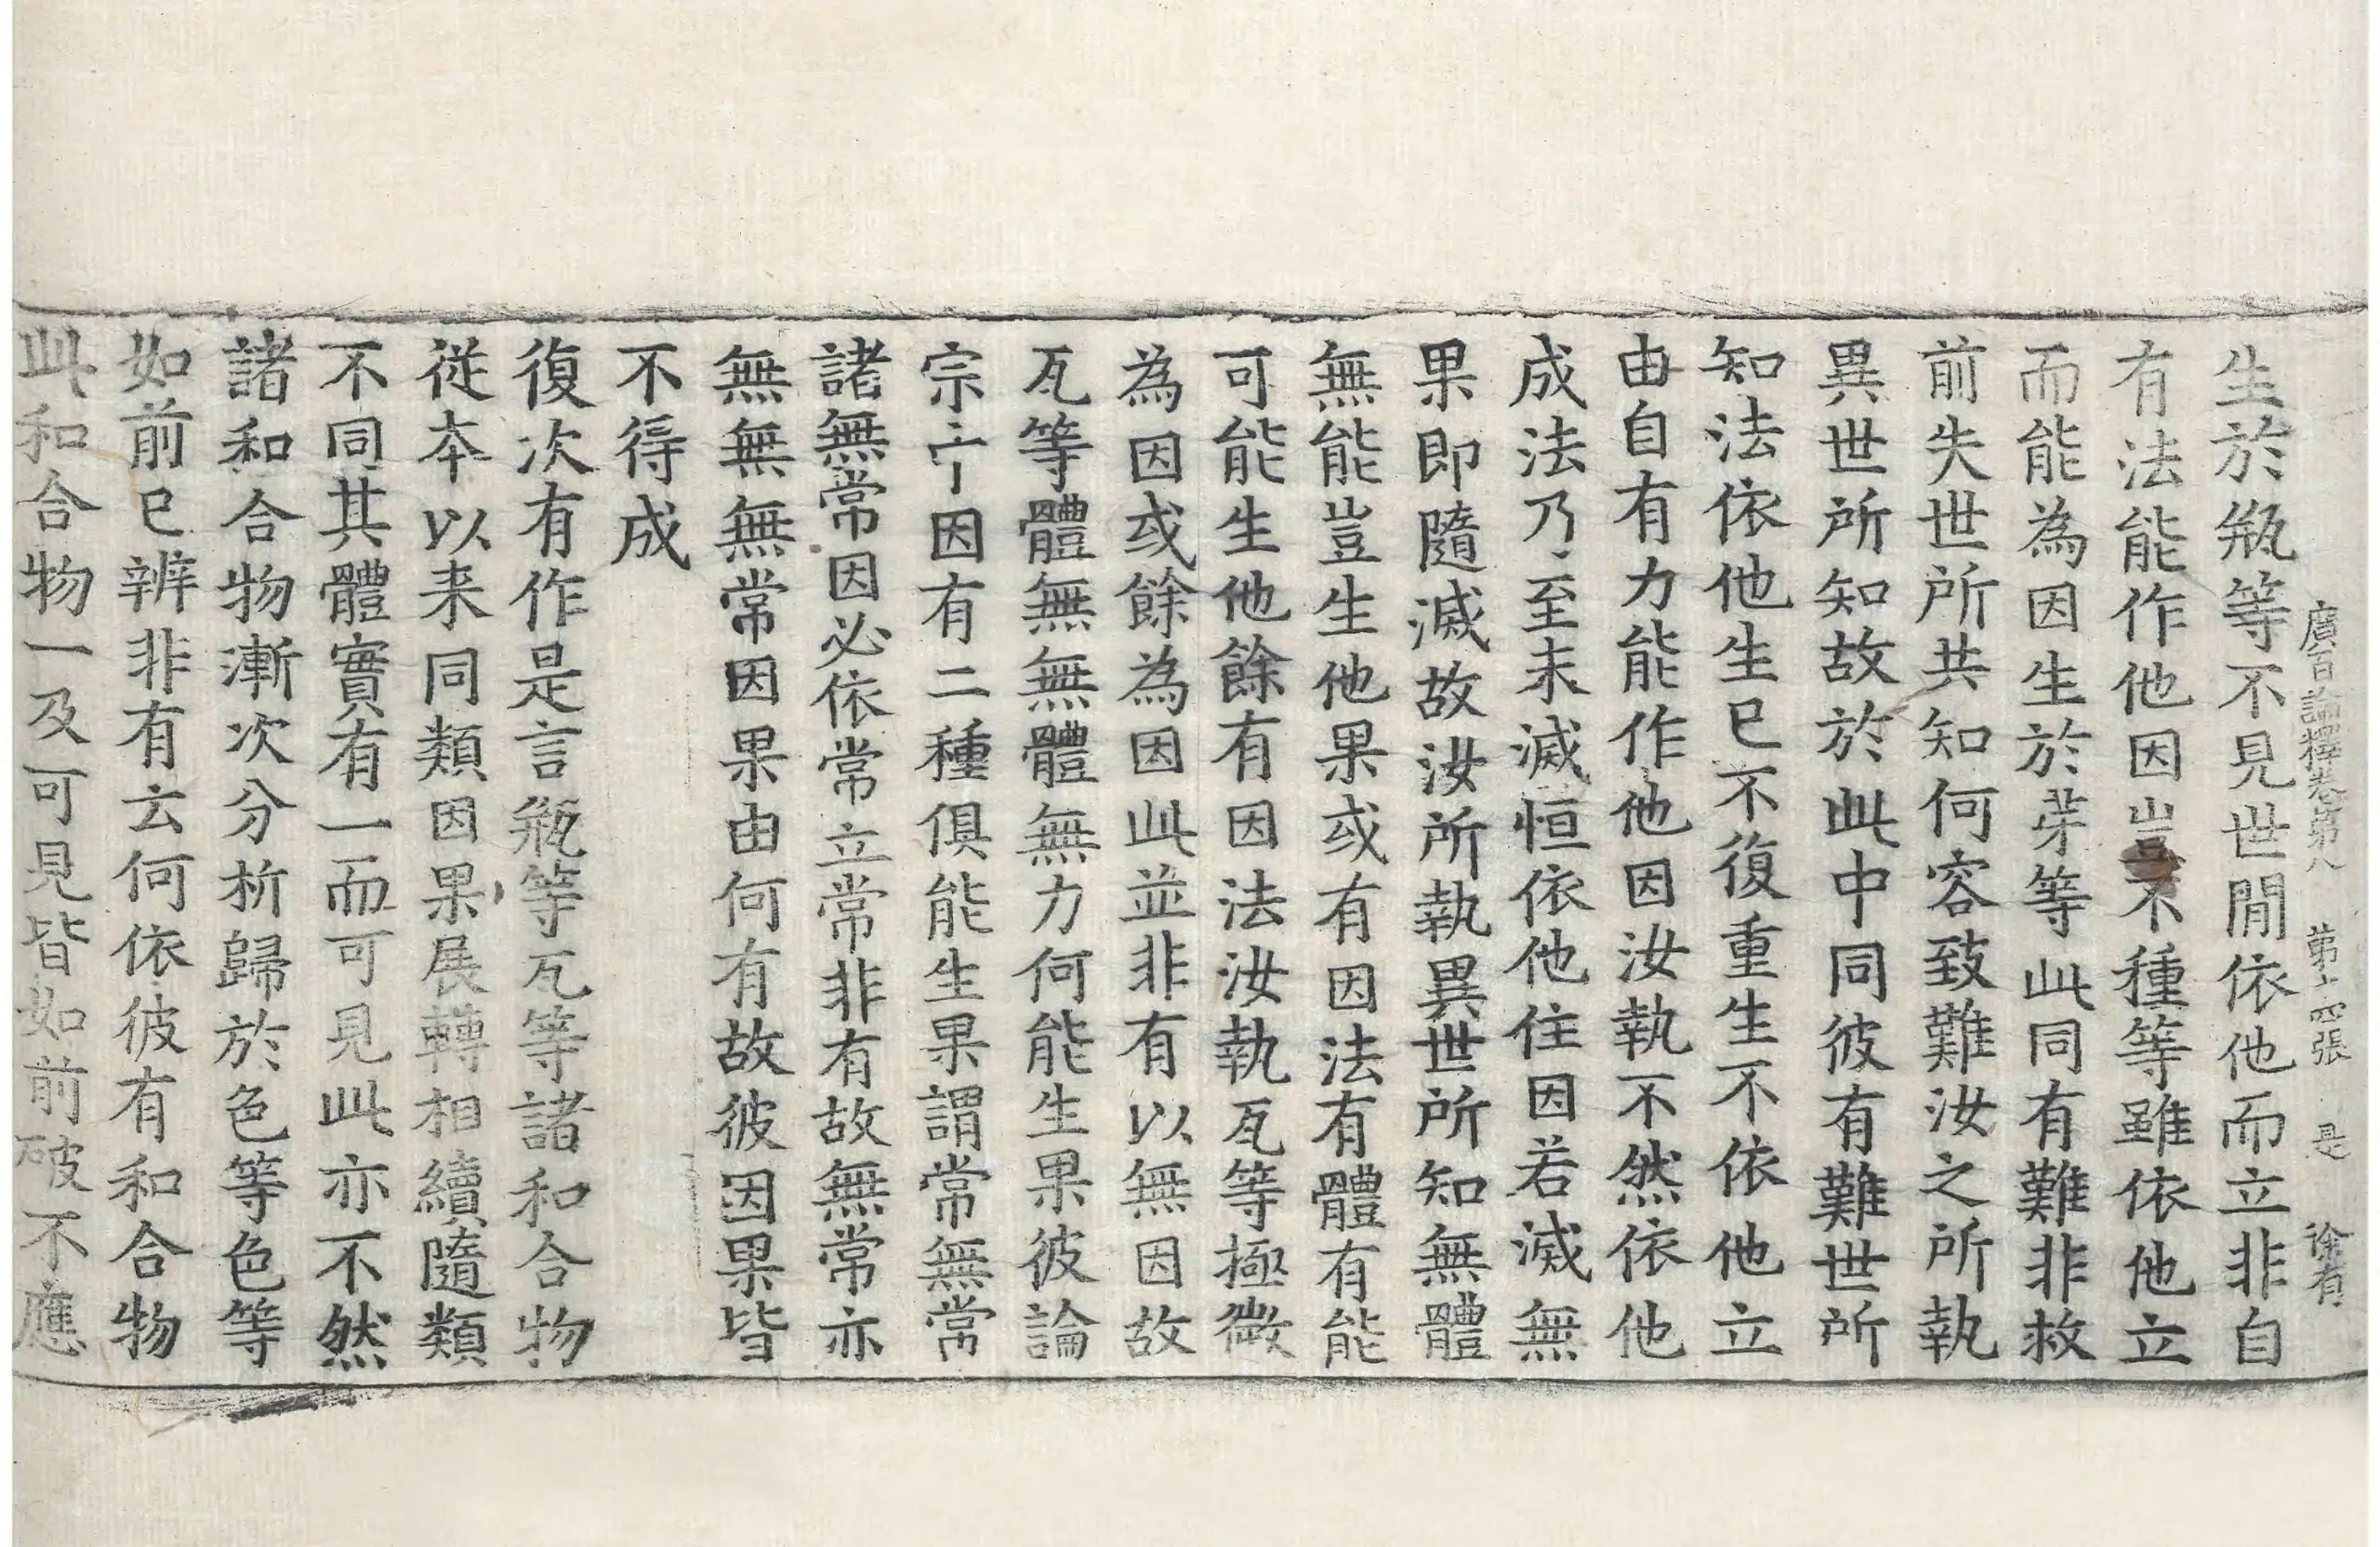 廣百論釋卷第八 第十四張 是 徐有
生於瓶等不見世間依他而立非自
有法能作他因豈不種等雖依他立
而能為因生於芽等此同有難非救
前失世所共知何容致難汝之所執
異世所知故於此中同彼有難世所
知法依他生已不復重生不依他立
由自有力能作他因汝執不然依他
成法乃至未滅恒依他住因若滅無
果即隨滅故汝所執異世所知無體
無能豈生他果或有因法有體有能
可能生他餘有因法汝執瓦等極微
為因或餘為因此並非有以無因故
瓦等體無無體無力何能生果彼論
宗亍因有二種俱能生果謂常無常
諸無常因必依常立常非有故無常亦
無無無常因果由何有故彼因果皆
不得成
復次有作是言瓶等瓦等諸和合物
從本以来同類因果展轉相續隨類
不同其體實有一而可見此亦不然
諸和合物漸次分析歸於色等色等
如前已辨非有云何依彼有和合物
此和合物一及可見皆如前破不應